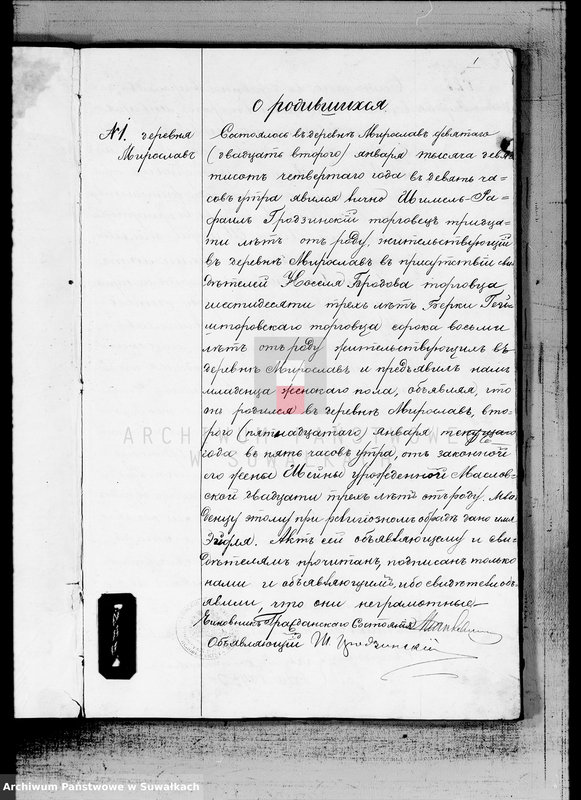 1
О родившихся
№1. деревня
Мирославъ
Состоялось въ деревнѣ Мирославъ девятаго
(двадцать втораго) января тысяча девя
тисотъ четвертаго года въ девять ча=
совъ утра явился лично Шмиель-Ра=
фаилъ Гродзинскій торговецъ тридца=
ти лѣтъ отъ роду, жительствующій
въ деревнѣ Мирославъ въ присутствіи сви
дѣтелей Іоселя Бродова торговца
шестидесяти трехъ лѣтъ Берки
торговца сорока восьми
лѣтъ отъ роду жительствующихъ въ
деревнѣ Мирославъ и предъявилъ намъ
младенца женскаго пола, объявляя, что
онъ родился въ деревнѣ Мирославъ, вто=
рого (пятнадцатаго) января текущаго
года въ пять часовъ утра, отъ законной
его жены Шейны урожденной Маслов=
ской двадцати трехъ лѣтъ отъ роду. Мла
денцу этому при религіозномъ обрядѣ дано имя
Акты сей объявляющему и сви=
дѣтелямъ прочитанъ, подписанъ только
нами и объявляющимъ, ибо свидѣтели объ
явили, что они неграмотные
Чиновникъ Гражданскаго Состоянія
Объявляющій Ш. Гродзинскій
ARCHIWUM PAŃSTWOWE
W SUWAŁKACH
Archiwum Państwowe w Suwałkach